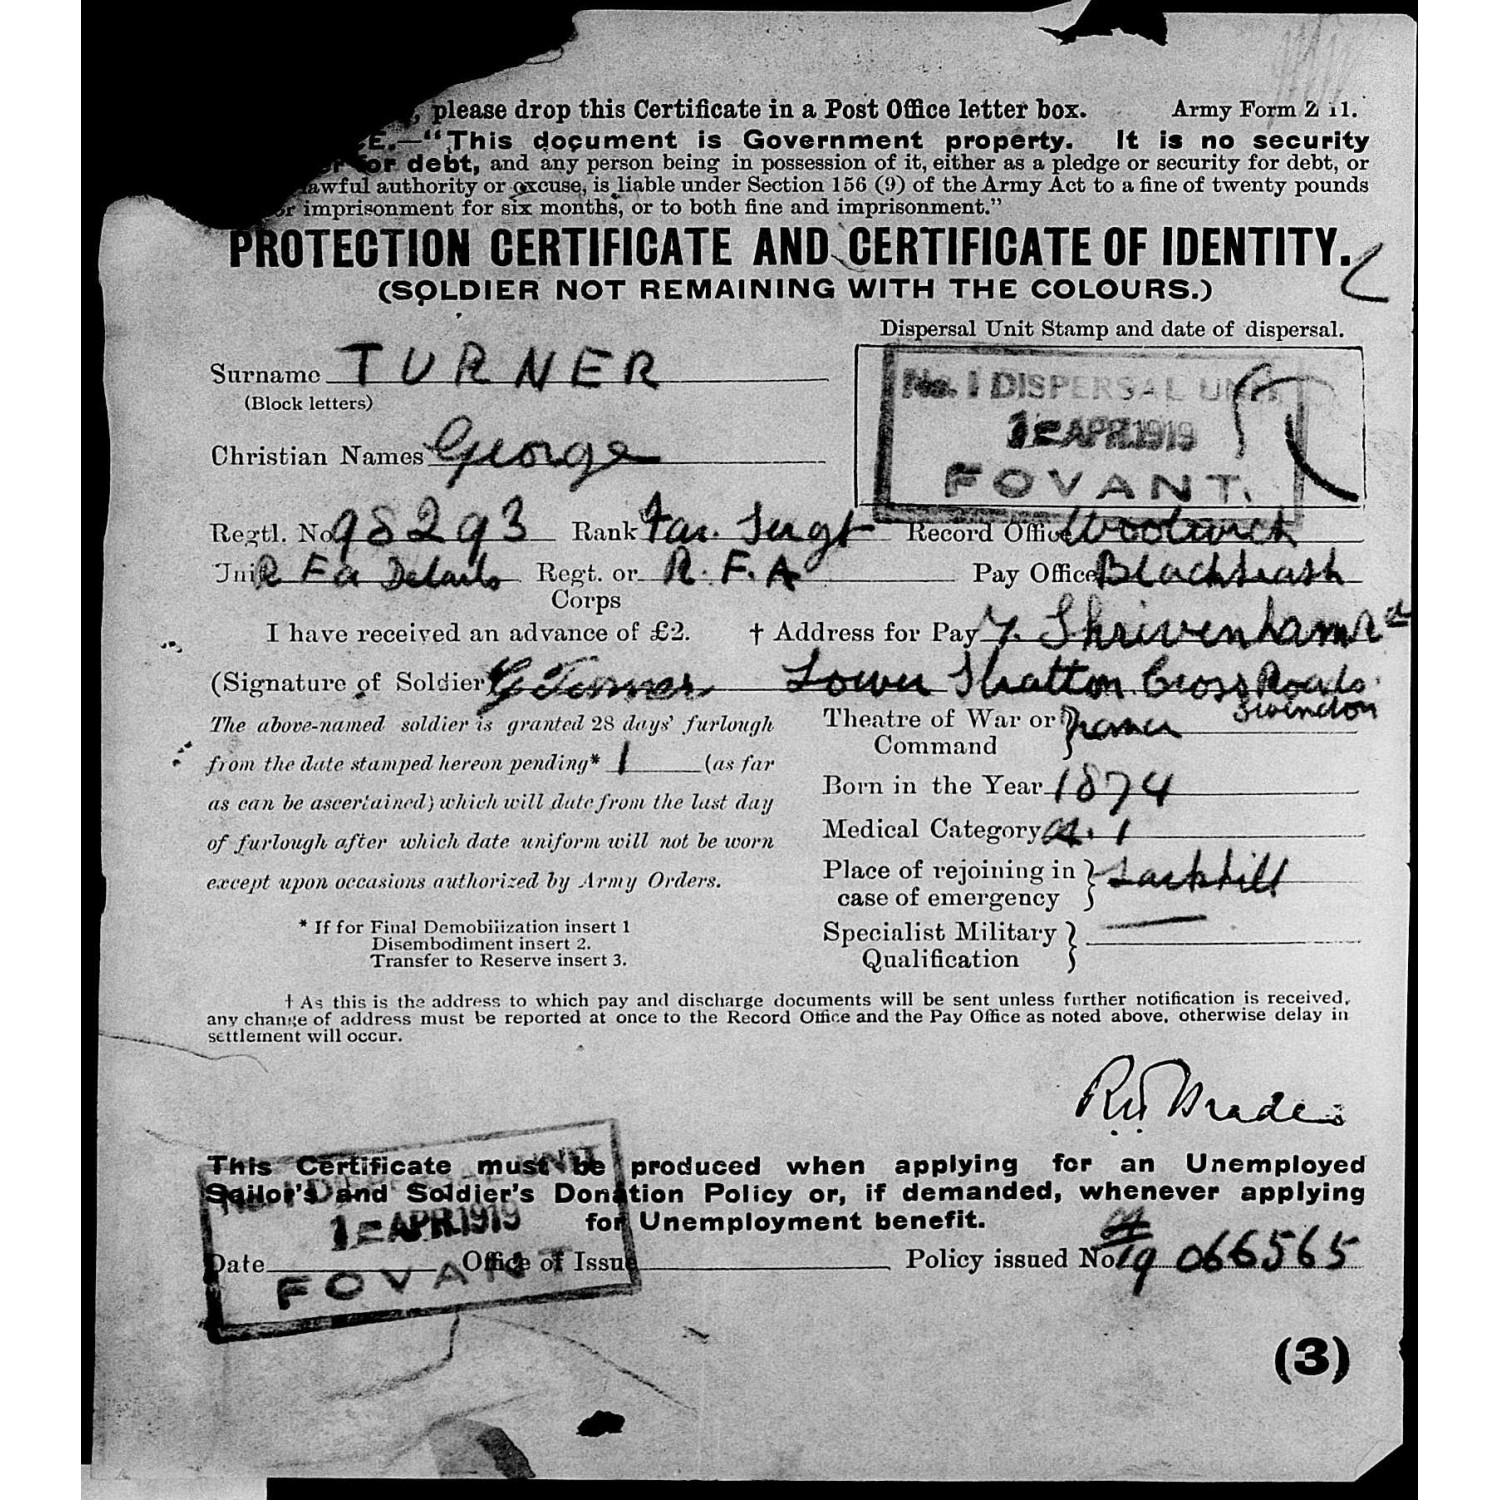 , please drop this Certificate in a Post Office letter box. Army Form Z 11.
E.—“This document is Government property. It is no security
for debt, and any person being in possession of it, either as a pledge or security for debt, or
lawful authority or excuse, is liable under Section 156 (9) of the Army Act to a fine of twenty pounds
or imprisonment for six months, or to both fine and imprisonment.”
PROTECTION CERTIFICATE AND CERTIFICATE OF IDENTITY.
(SOLDIER NOT REMAINING WITH THE COLOURS.)
Dispersal Unit Stamp and date of dispersal.
No. 1 DISPERSAL UNIT
1 APR.1919
FOVANT.
Surname TURNER
(Block letters)
Christian Names George
Regtl. No 98293 Rank Far. Sergt Record Office Woolwich
Unit R Fa Details Regt. or Corps R.F.A Pay Office Blackheath
I have received an advance of £2. † Address for Pay 7. Shrivenham Rd
(Signature of Soldier) G Turner Lower Stratton Cross Roads.
Swindon
The above-named soldier is granted 28 days’ furlough
from the date stamped hereon pending* 1 (as far
as can be ascertained) which will date from the last day
of furlough after which date uniform will not be worn
except upon occasions authorized by Army Orders.
* If for Final Demobilization insert 1
Disembodiment insert 2.
Transfer to Reserve insert 3.
Theatre of War or Command } France
Born in the Year 1874
Medical Category A. 1
Place of rejoining in case of emergency } Larkhill
Specialist Military Qualification } —
† As this is the address to which pay and discharge documents will be sent unless further notification is received,
any change of address must be reported at once to the Record Office and the Pay Office as noted above, otherwise delay in
settlement will occur.
This Certificate must be produced when applying for an Unemployed
Sailor’s and Soldier’s Donation Policy or, if demanded, whenever applying
for Unemployment benefit.
1 APR.1919
FOVANT
Date Office of Issue Policy issued No. A/19 066565
(3)